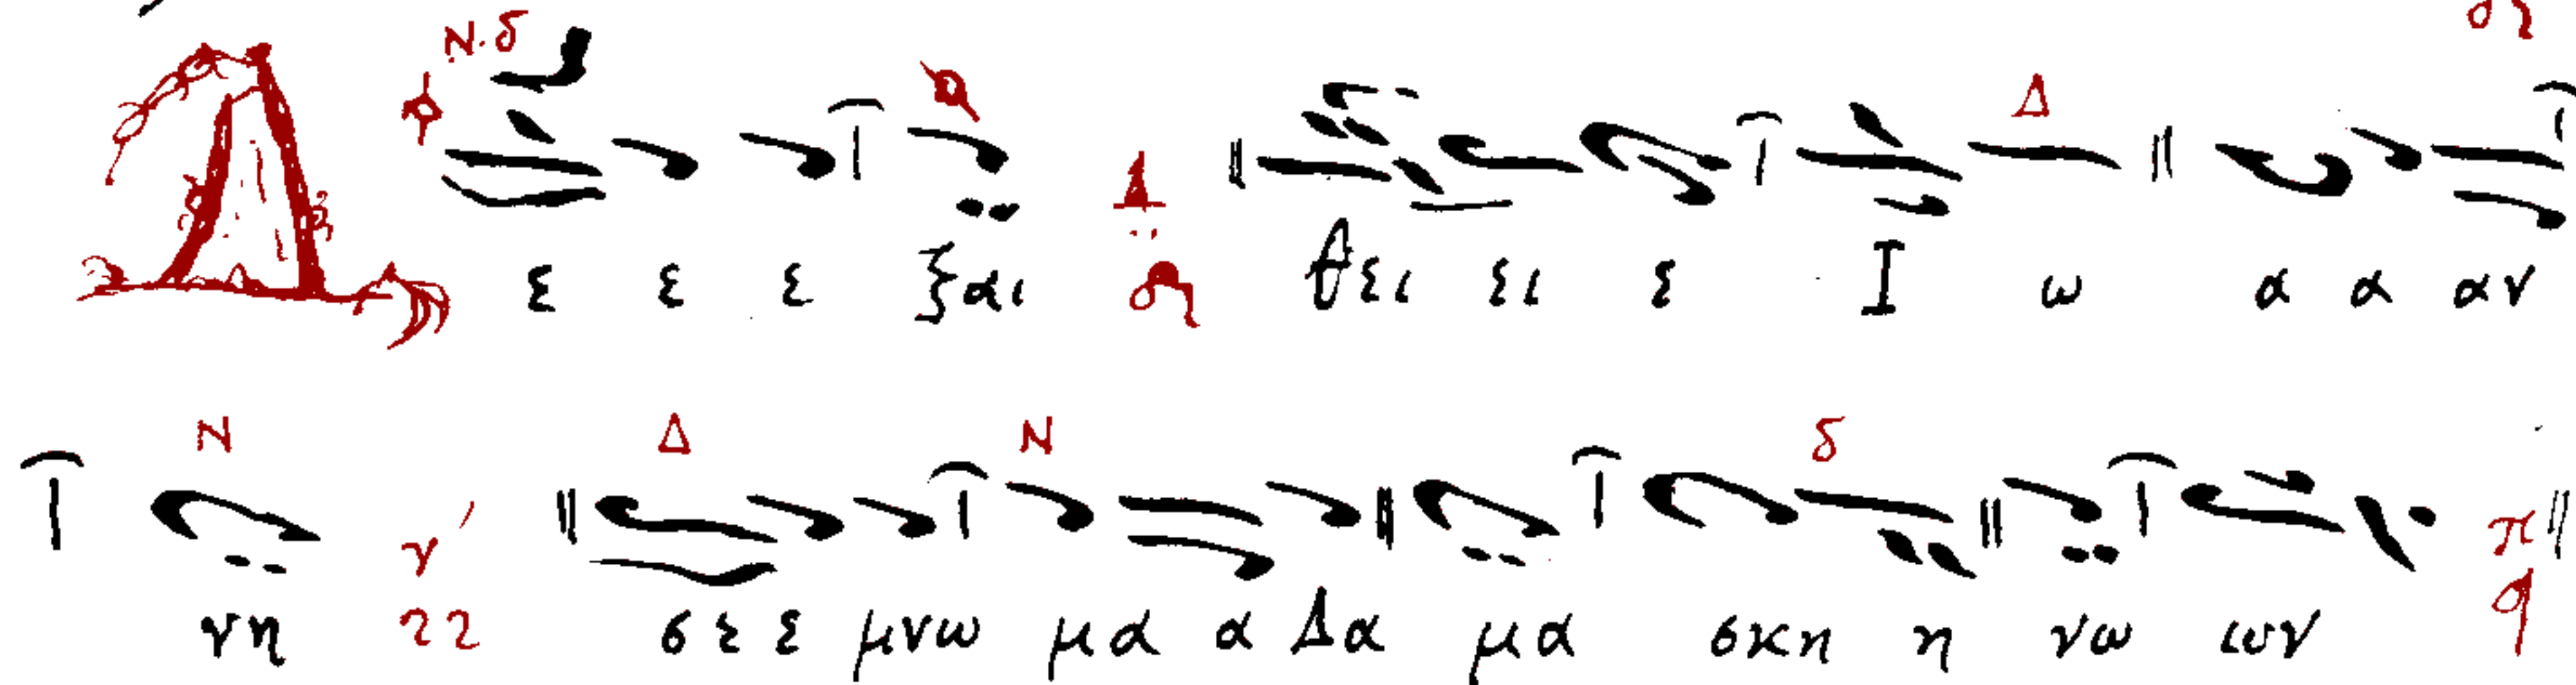 Δ ε ε ε ξαι θει ει ε Ι ω α α αν
νη σε ε μνω μα α Δα μα σκη η νω ων